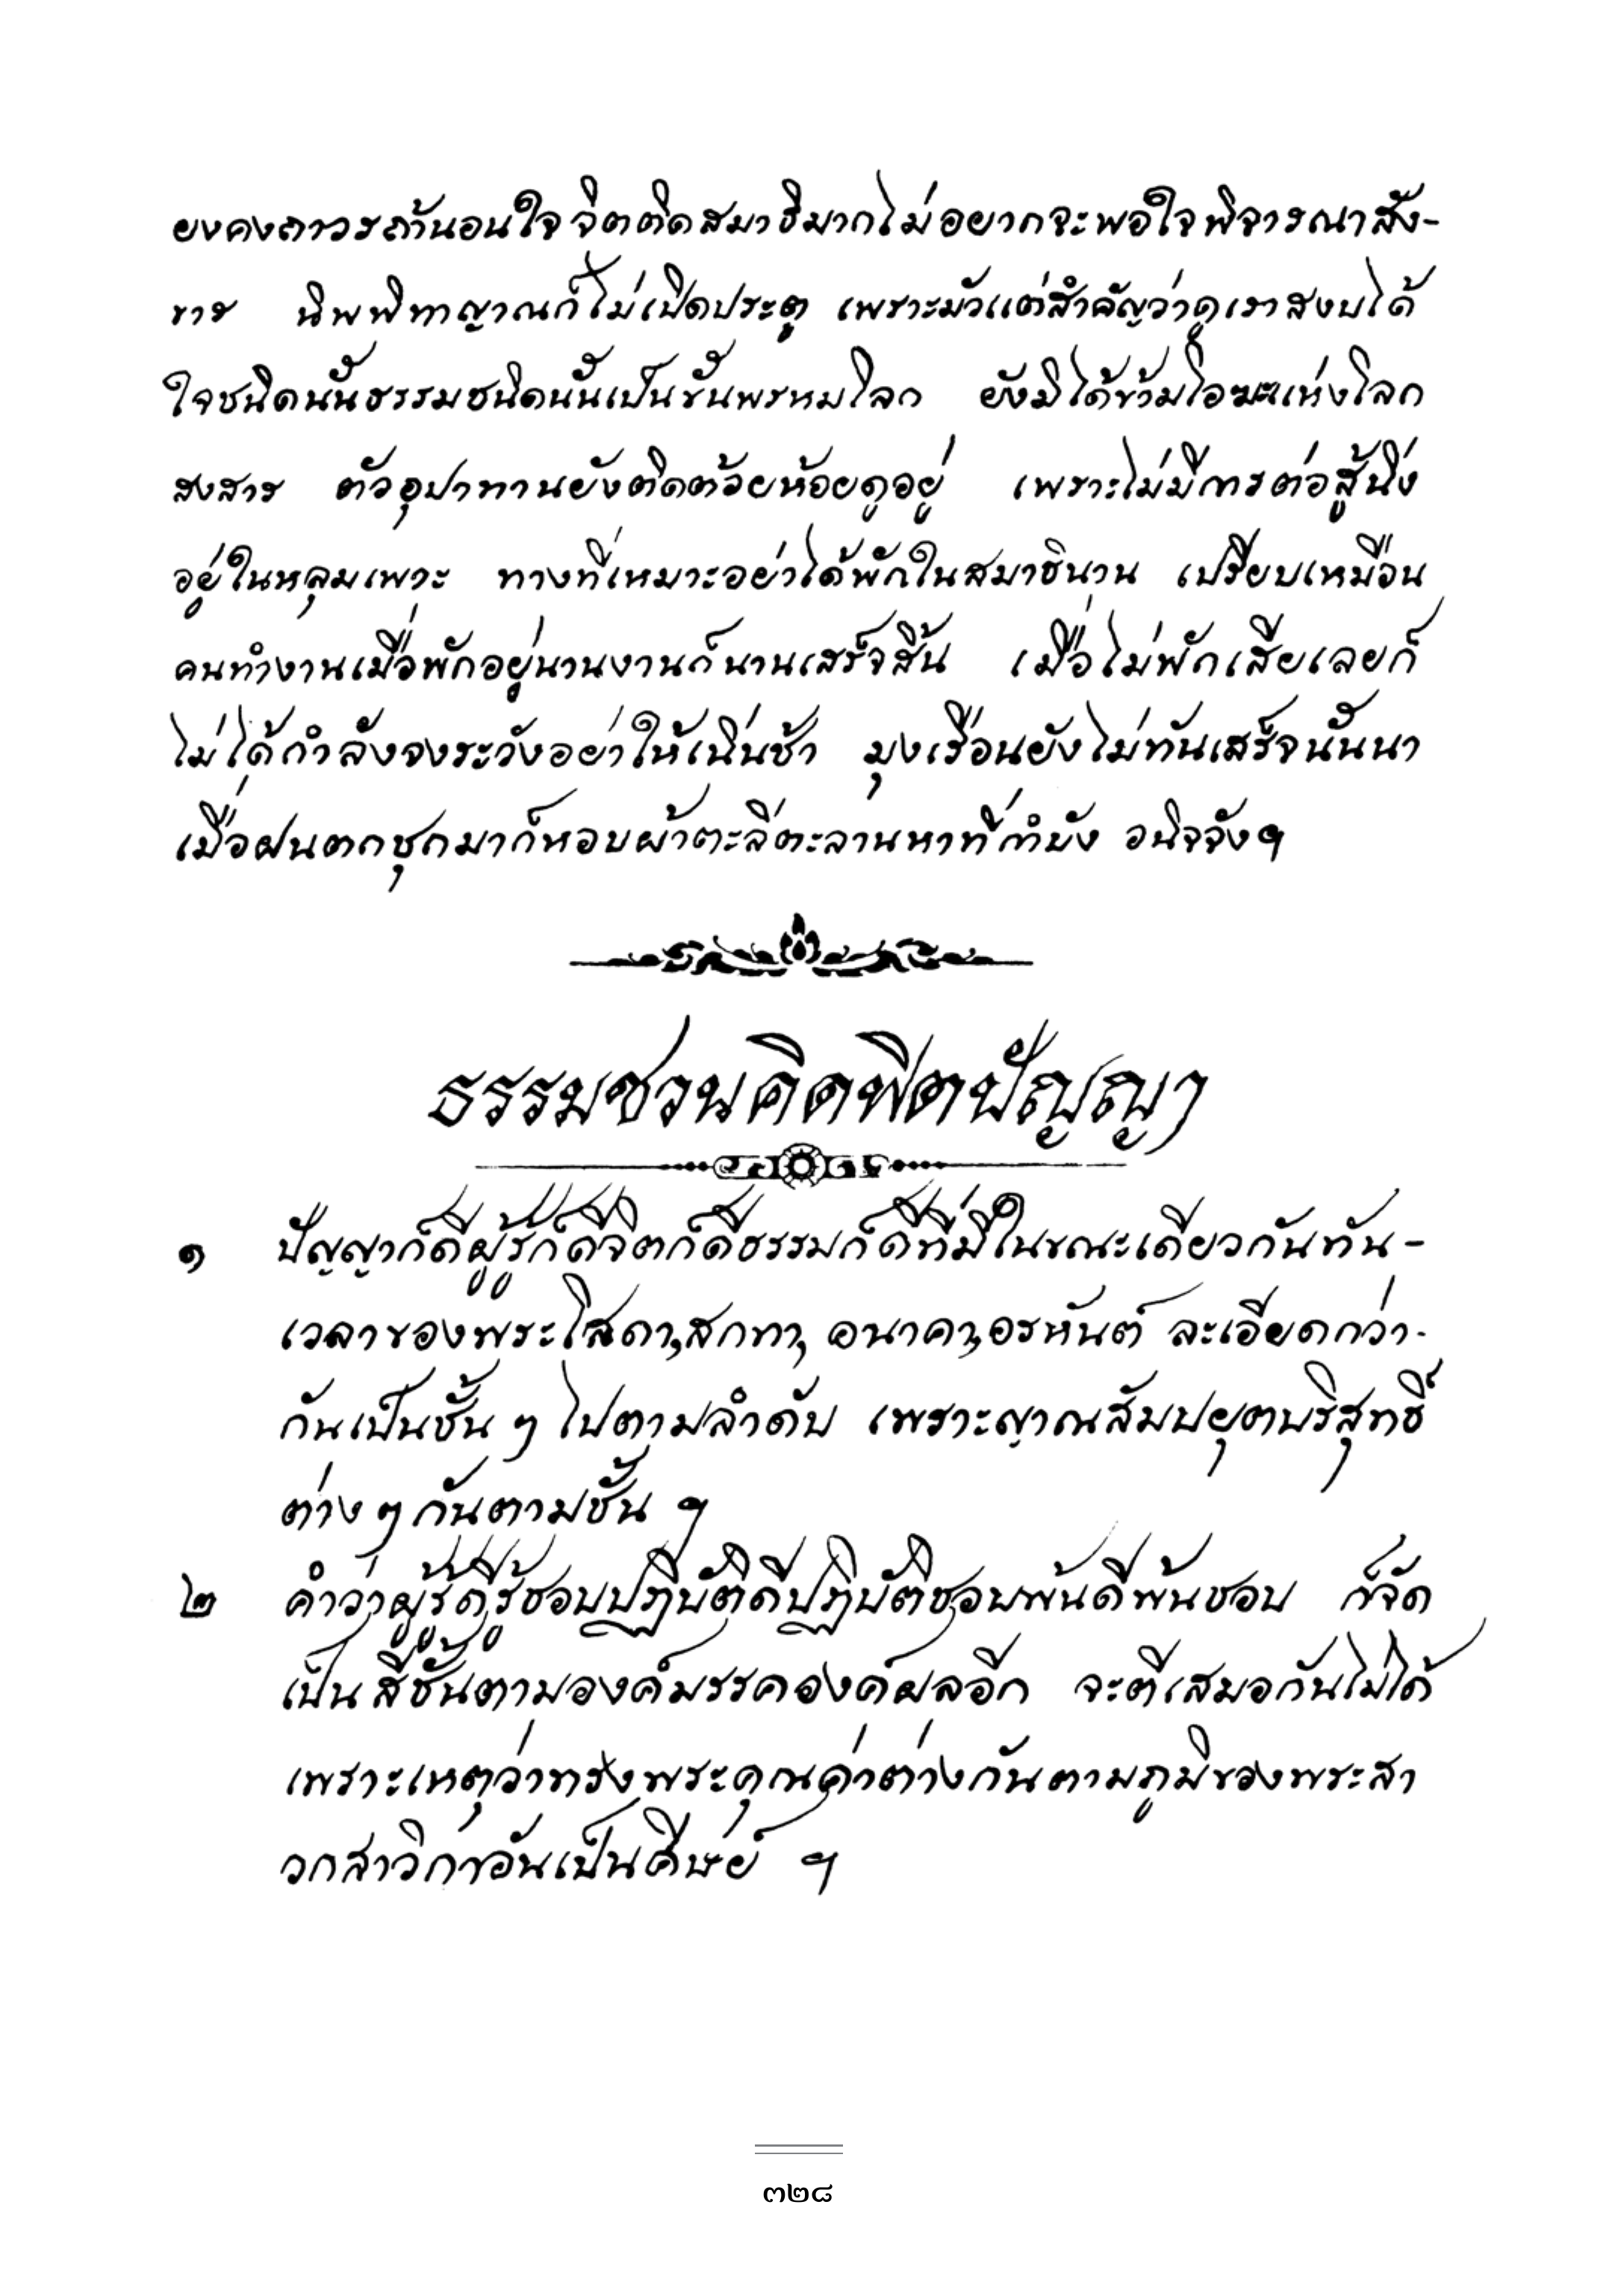 ยงคงถาวรถ้านอนใจ จิตติดสมาธิมากไม่อยากจะพอใจพิจารณาสัง-
ขาร นิพพิทาญาณก็ไม่เปิดประตู เพราะมัวแต่สำคัญว่าดูเราสงบได้
ใจชนิดนั้นธรรมชนิดนั้นเป็นขั้นพรหมโลก ยังมิได้ข้ามโอฆะแห่งโลก
สงสาร ตัวอุปาทานยังติดต้อยห้อยดูอยู่ เพราะไม่มีการต่อสู้นิ่ง
อยู่ในหลุมเพาะ ทางที่เหมาะอย่าได้พักในสมาธินาน เปรียบเหมือน
คนทำงานเมื่อพักอยู่นานงานก็นานเสร็จสิ้น เมื่อไม่พักเสียเลยก็
ไม่ได้กำลังจงระวังอย่าให้เนิ่นช้า มุงเรือนยังไม่ทันเสร็จนั้นนา
เมื่อฝนตกชุกมาก็หอบผ้าตะลีตะลานหาที่กำบัง อนิจจังฯ
ธรรมชวนคิดฟิตปัญญา
๑ ปัญญาก็ดีผู้รู้ก็ดีจิตก็ดีธรรมก็ดีที่มีในขณะเดียวกันทัน-
เวลาของพระโสดา,สกทา, อนาคา,อรหันต์ ละเอียดกว่า-
กันเป็นชั้น ๆ ไปตามลำดับ เพราะญาณสัมปยุตบริสุทธิ์
ต่าง ๆ กันตามชั้น ฯ
๒ คำว่าผู้รู้ดีรู้ชอบปฏิบัติดีปฏิบัติชอบพ้นดีพ้นชอบ ก็จัด
เป็นสี่ชั้นตามองค์มรรคองค์ผลอีก จะตีเสมอกันไม่ได้
เพราะเหตุว่าทรงพระคุณค่าต่างกันตามภูมิของพระสา
วกสาวิกาอันเป็นศิษย์ ฯ
๓๒๘